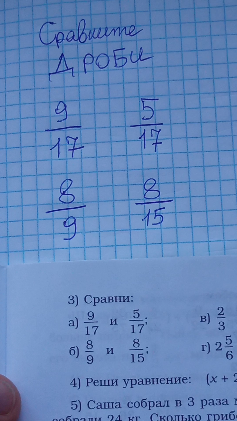 Сравните
ДРОБИ
9/17 5/17
8/9 8/15
3) Сравни:
а) 9/17 и 5/17; в) 2/3
б) 8/9 и 8/15; г) 2 5/6
4) Реши уравнение: (x + 2
5) Саша собрал в 3 раза
собрали 24 кг. Сколько грибо